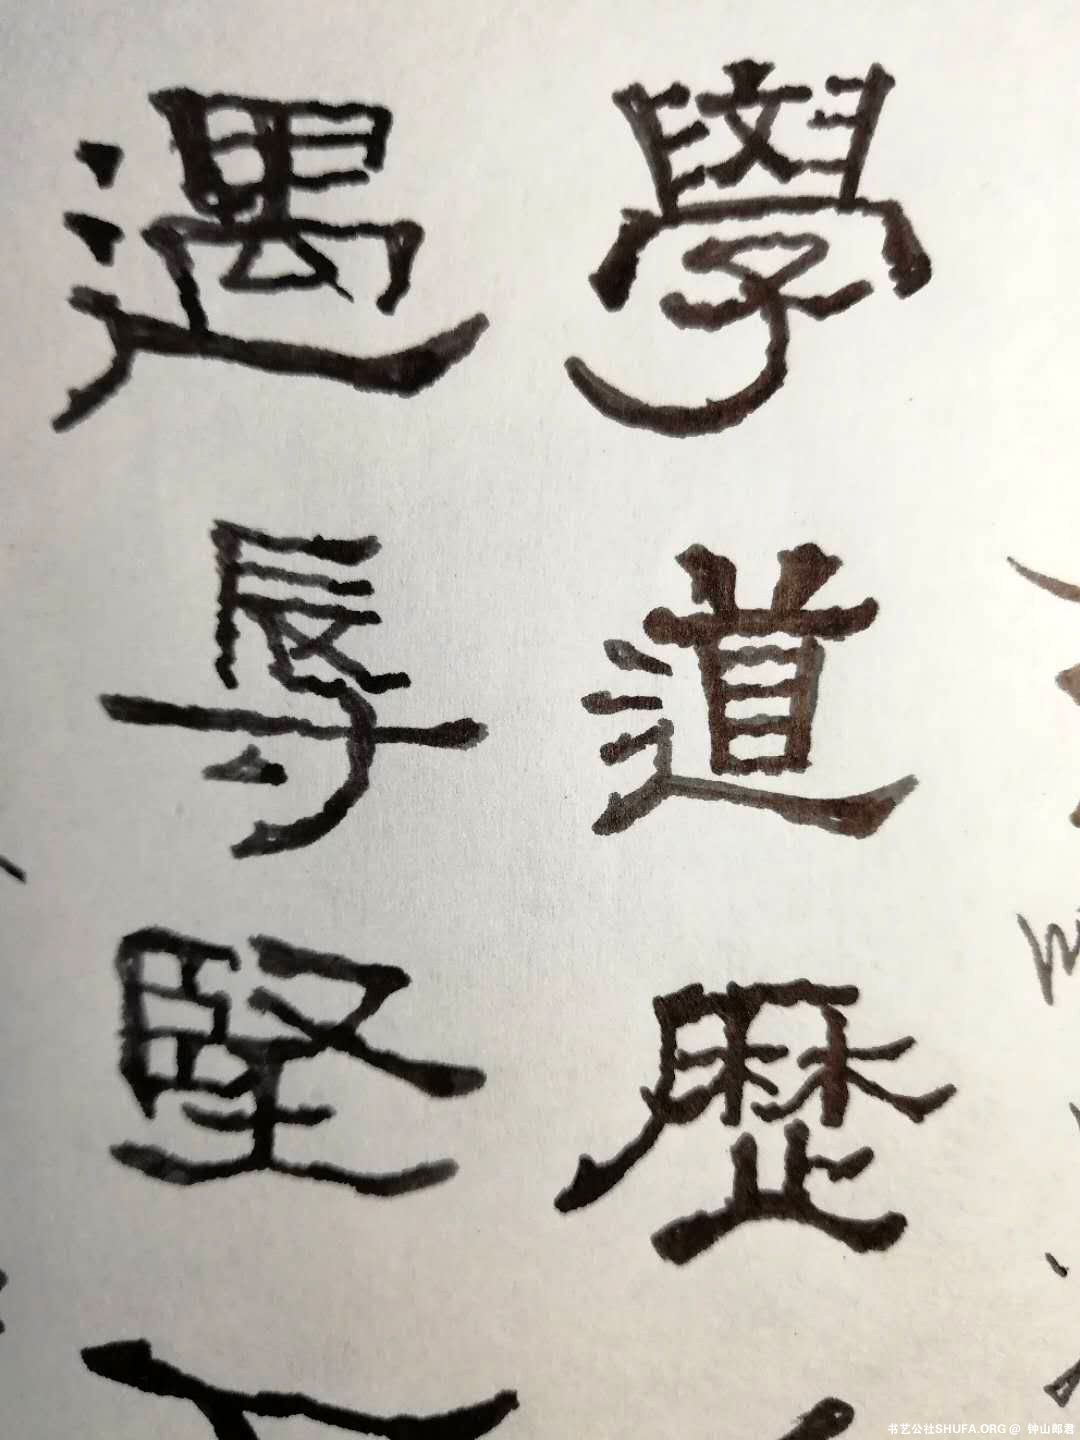 學道歷
遇辱堅
书艺公社SHUFA.ORG @ 钟山郎君